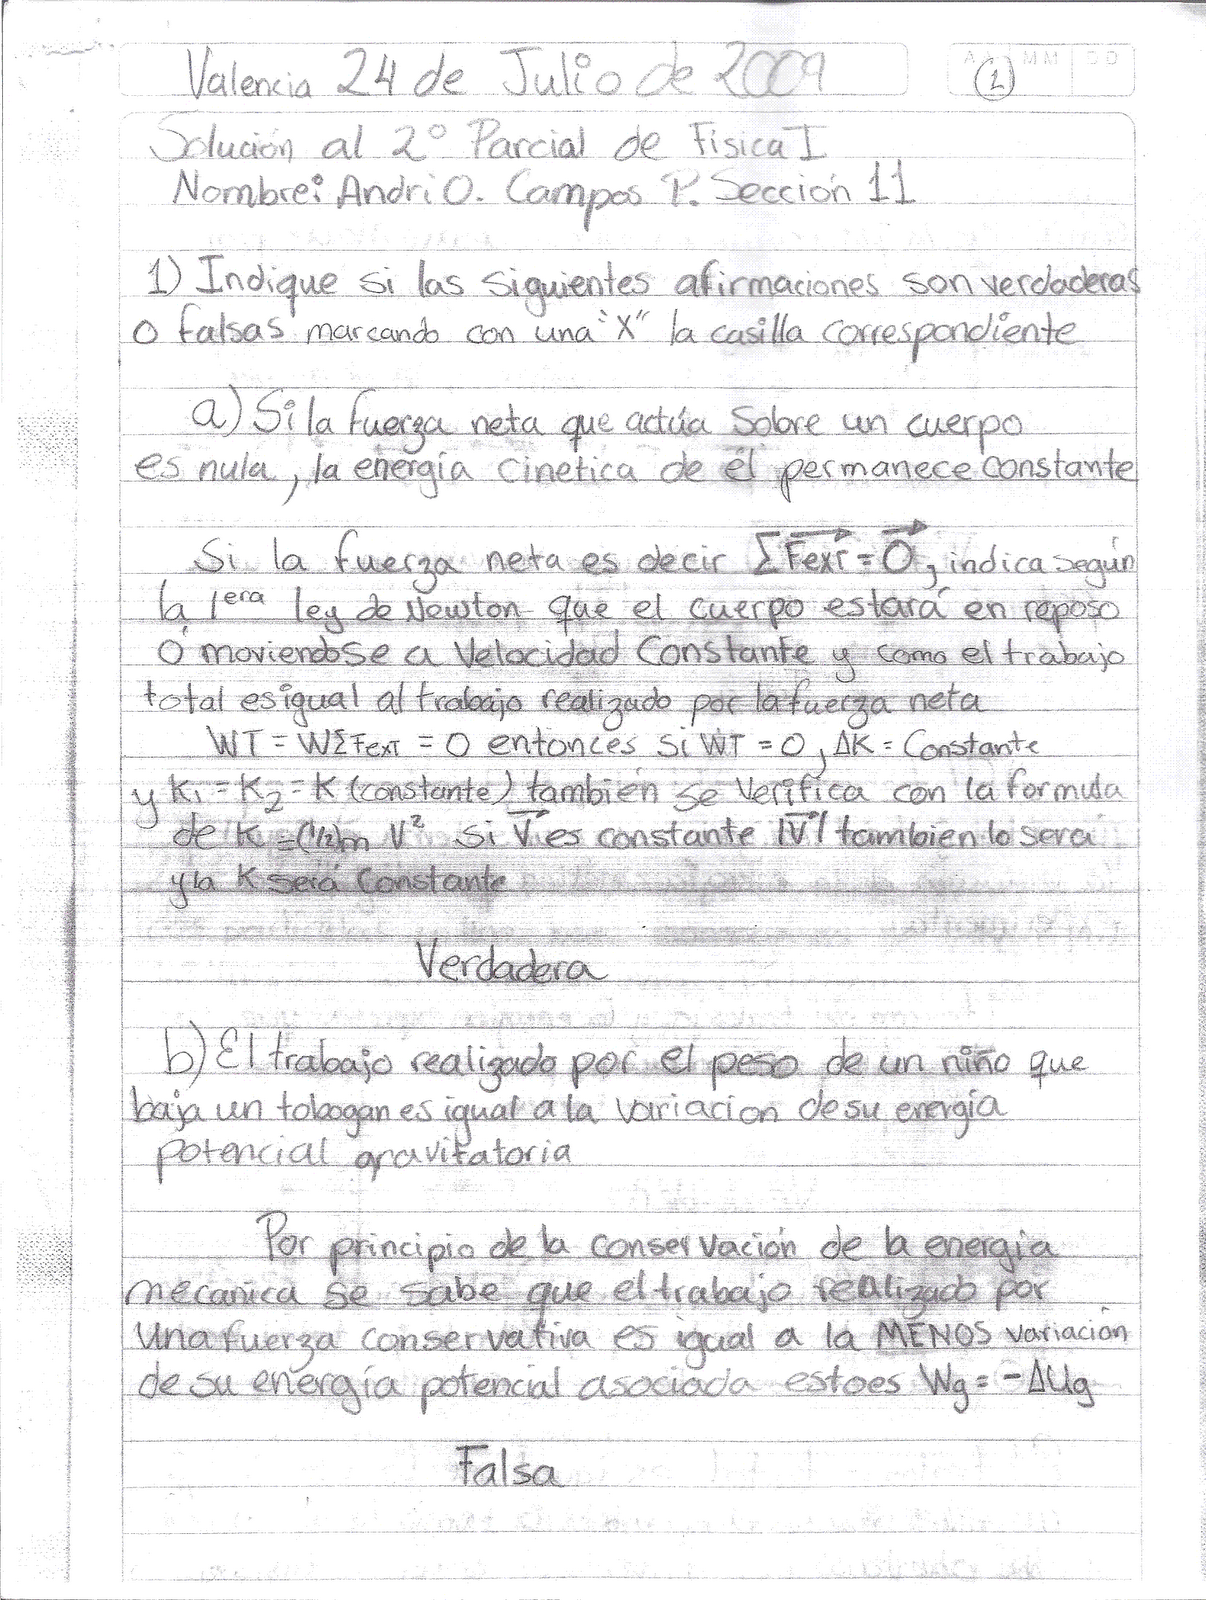 Valencia 24 de Julio de 2009
AA MM DD
1
Solución al 2° Parcial de Fisica I
Nombre: Andri O. Campos P. Sección 11
1) Indique si las siguientes afirmaciones son verdaderas
o falsas marcando con una "X" la casilla correspondiente
a) Si la fuerza neta que actúa sobre un cuerpo
es nula, la energía cinetica de él permanece constante
Si la fuerza neta es decir ∑Fext = 0, indica según
la 1era ley de Newton que el cuerpo estará en reposo
ó moviendose a Velocidad Constante y como el trabajo
total es igual al trabajo realizado por la fuerza neta
WT = WΣFexT = 0 entonces si WT = 0, ΔK = Constante
y K1 = K2 = K (constante) también se verifica con la formula
de K = (1/2)m V² si V es constante |V| tambien lo sera
y la K será Constante
Verdadera
b) El trabajo realizado por el peso de un niño que
baja un tobogan es igual a la variacion de su energía
potencial gravitatoria
Por principio de la conservación de la energía
mecánica se sabe que el trabajo realizado por
una fuerza conservativa es igual a la MENOS variación
de su energía potencial asociada esto es Wg = -ΔUg
Falsa